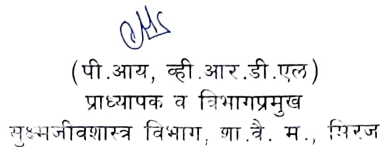 (पी.आय, व्ही.आर.डी.एल)
प्राध्यापक व विभागप्रमुख
सुक्ष्मजीवशास्त्र विभाग, शा.वै. म., मिरज